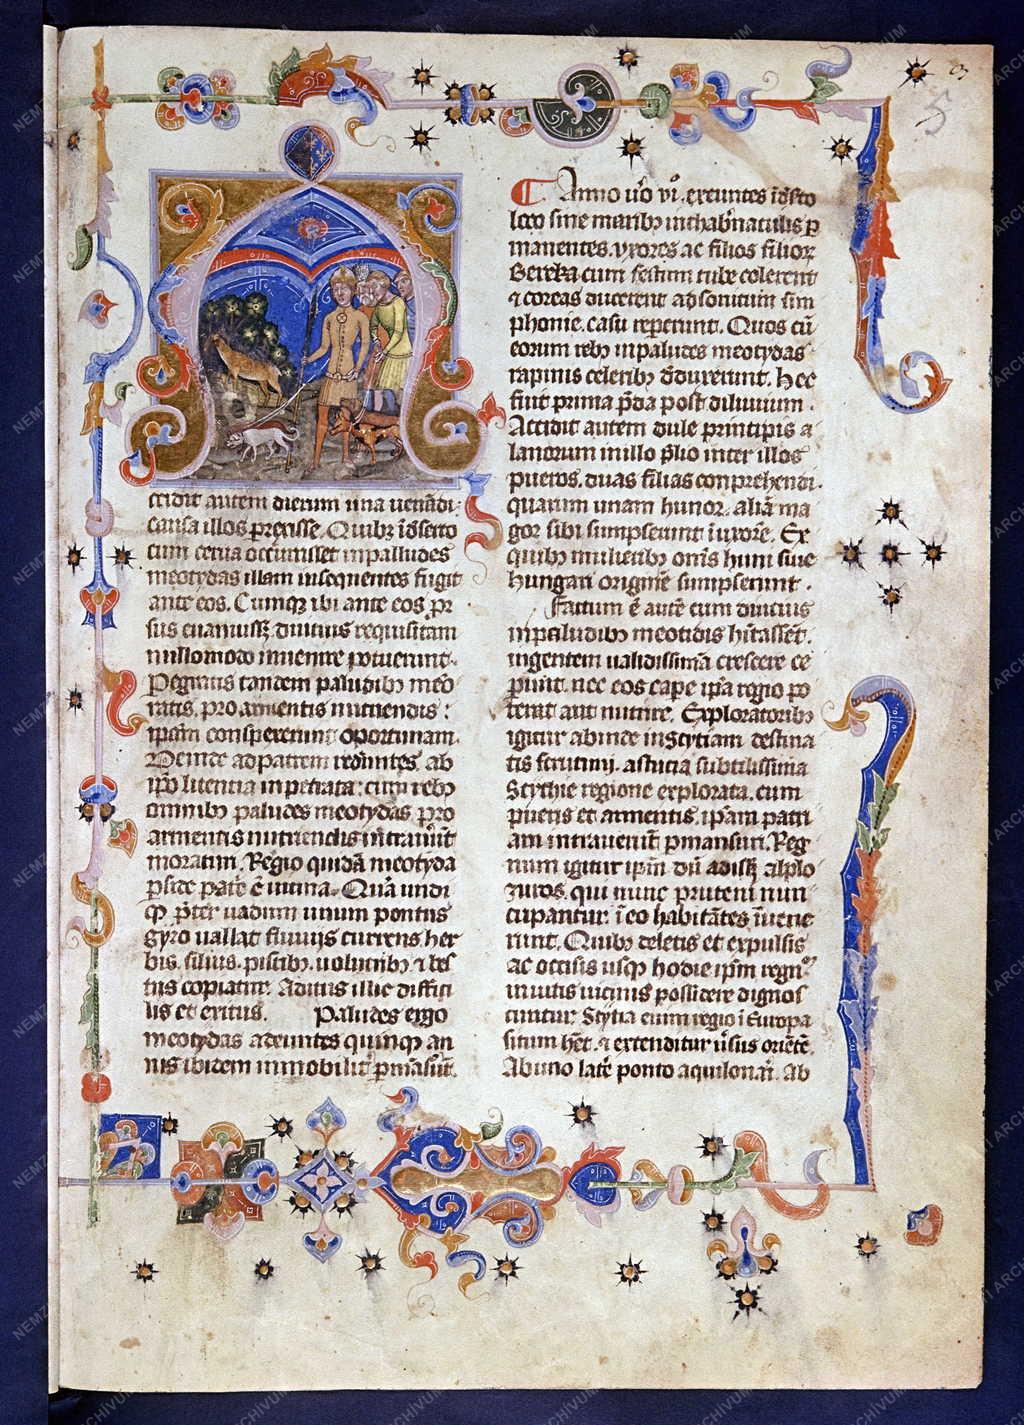 ccidit autem dierum una uenãdi
causa illos perexisse. Quibꝫ ĩ dẽserto
cum cerua occurrisset in palludes
meotydas illam insequentes fugit
ante eos. Cumqꝫ ibi ante eos pror
sus euanuissꝫ. diucius requisitam
nullo modo inuenire potuerunt.
Pegratis tandem paludibꝫ meo
tatis. pro armentis nutriendis
ipam conspexerunt oportunam.
Deinde ad patrem redeuntes. ab
ip̃o licentia inpetrata: cum rebꝫ
omnibꝫ paludes meotydas pro
armentis nutriendis intrauer̃ũt
moraturi. Regio quidã meotyda
p̱side patr̃e ẽ uicina. Quã undi
qꝫ p̃ter uadum unum pontus
gyro uallat. fluuijs currens. her
bis. siluis. piscibꝫ. uolucribꝫ ⁊ bes
tijs copiatur. Aditus illic diffici
lis et exitus. Paludes ergo
meotydas adeuntes quinqꝫ an
nis ibidem inmobilit̃ p̱mãserũt.
Anno u̾o vi̾. exeuntes ĩ dẽserto
loco sine maribꝫ in thab̾naculis p̱
manentes. vxores ac filios filioꝝ
Bereka cum festum tube colerent
⁊ coreas ducerent ad sonitum sim
phonie. casu repererunt. Quos cũ
eorum rebꝫ in paludes meotydas
rapinis celeribꝫ d̾duxerunt. Hec
fuit prima p̃da post diluuium.
Accidit autem dule principis a
lanorum in illo p̃lio inter illos
pueros. duas filias conprehendi.
quarum unam hunor. aliã ma
gor sibi sumpserunt ĩ uxorẽ. Ex
quibꝫ mulieribꝫ om̃s huni siue
hungari originẽ sumpserunt.
Factum ẽ autẽ cum diucius
in paludibꝫ meotidis hĩtassent.
in gentem ualidissimã crescere ce
perunt. nec eos cape ip̃a regio po
terat aut nutrire. Exploratoribꝫ
igitur abinde in Scytiam destina
tis scrutinij. astucia subtilissima
Scythie regione explorata. cum
pueris et armentis. ip̃am patri
am intrauerunt p̱mansuri. Reg
num igitur ip̃m dũ adissꝫ alplo
zuros. qui nunc pruteni nun
cupantur. ĩ eo habitãtes ĩuene
runt. Quibꝫ deletis et expulsis
ac occisis usqꝫ hodie ip̃m regnũ
inuitis uicinis possidere dignos
cuntur. Scytia eium regio ĩ Europa
situm hẽt. ⁊ extenditur u̾sus oriẽtẽ.
Ab uno lat̃e ponto aquilonari. Ab